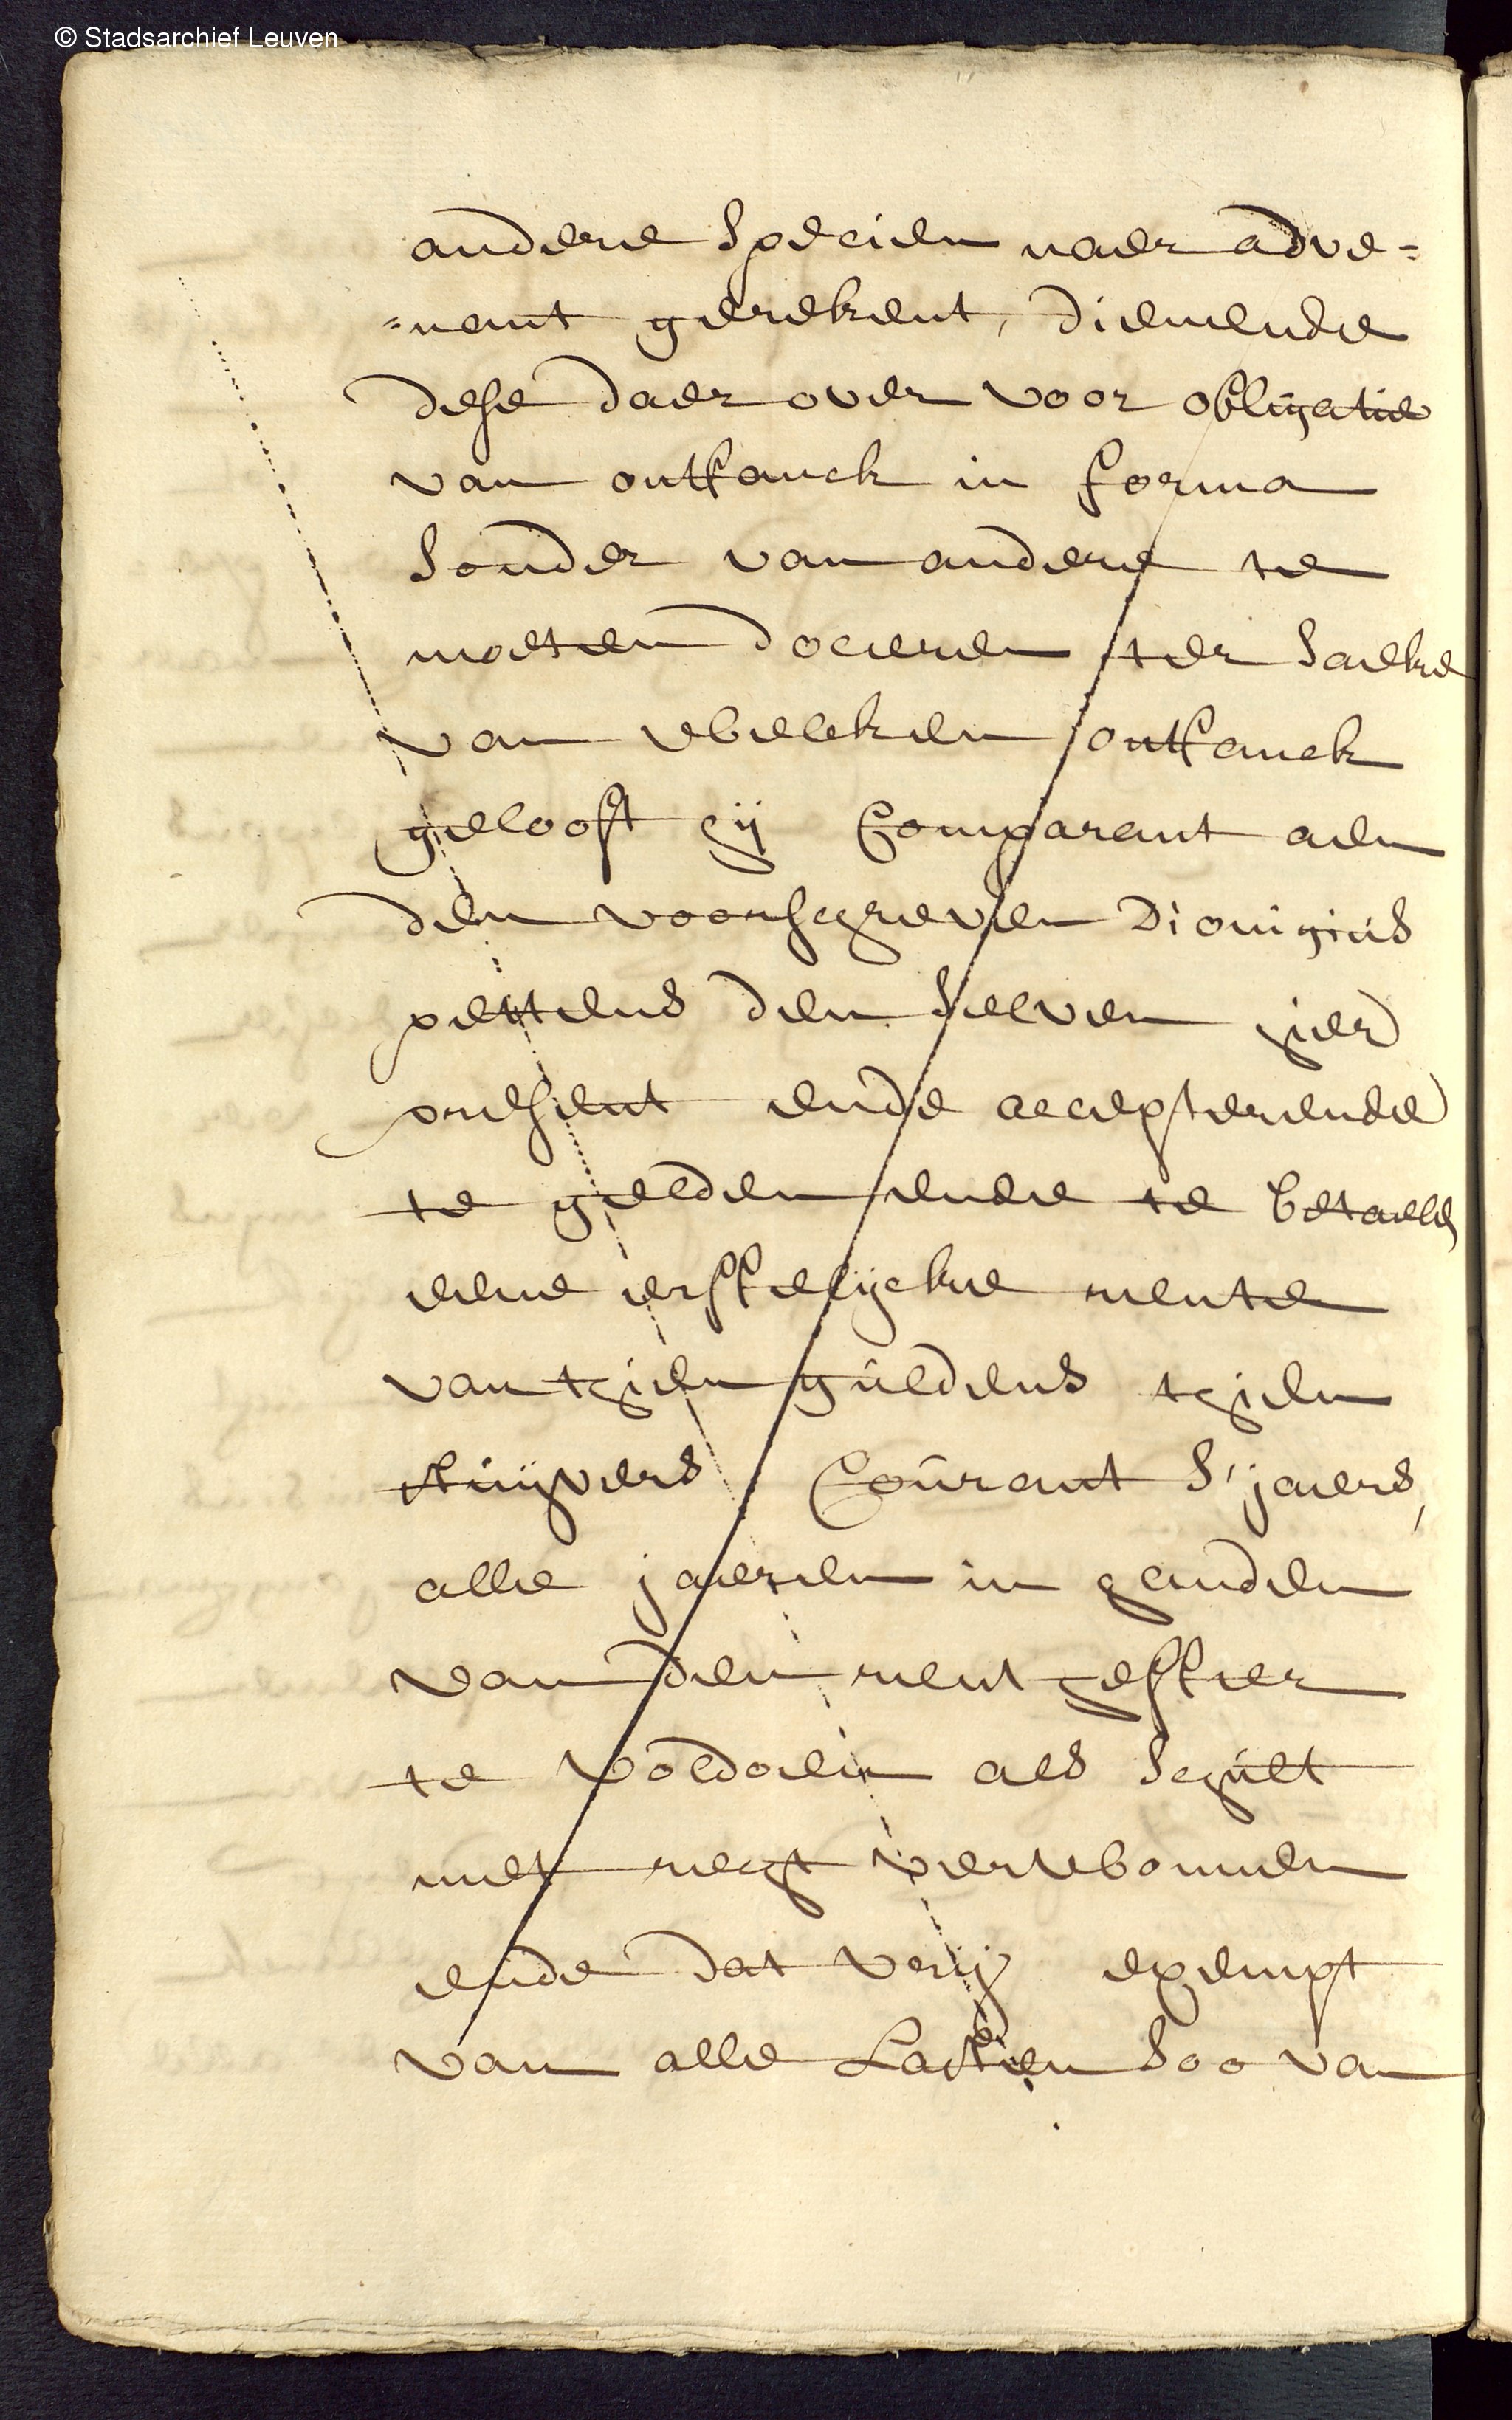 © Stadsarchief Leuven
andere specien naer adve=
=nant gerekent, dienende
dese daer over voor obligatie
van ontfanck in forma
sonder van andere te
moeten doceren ter saeke
van welcken ontfanck
gelooft hij Comparant aen
den voorschreven Dionijsius
pettens den selven hier
present ende accepterende
te gelden ende te betaelen
eene erffelijcke rente
van thien guldens thien
stuijvers Courant s'jaers,
alle jaeren in handen
van den rentheffer
te voldoen als schult
met recht verwonnen
ende dat vrij exempt
van alle Lasten soo van